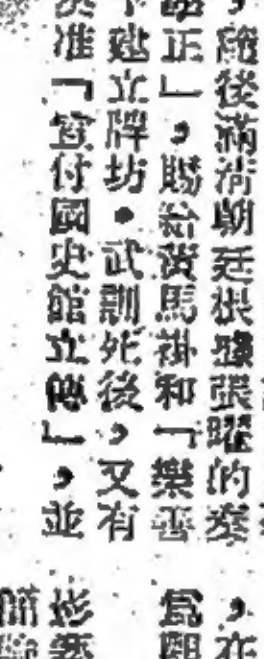 ，隨後滿清朝廷根據張曜的奏
正」，賜給黃馬褂和「樂善
下建立牌坊。武訓死後，又有
准「宣付國史館立傳」，並
，在